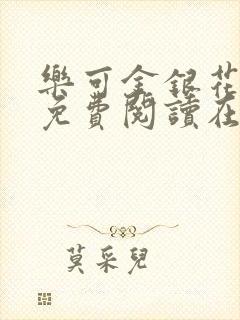 樂可金銀花
免費閱讀在
莫采兒